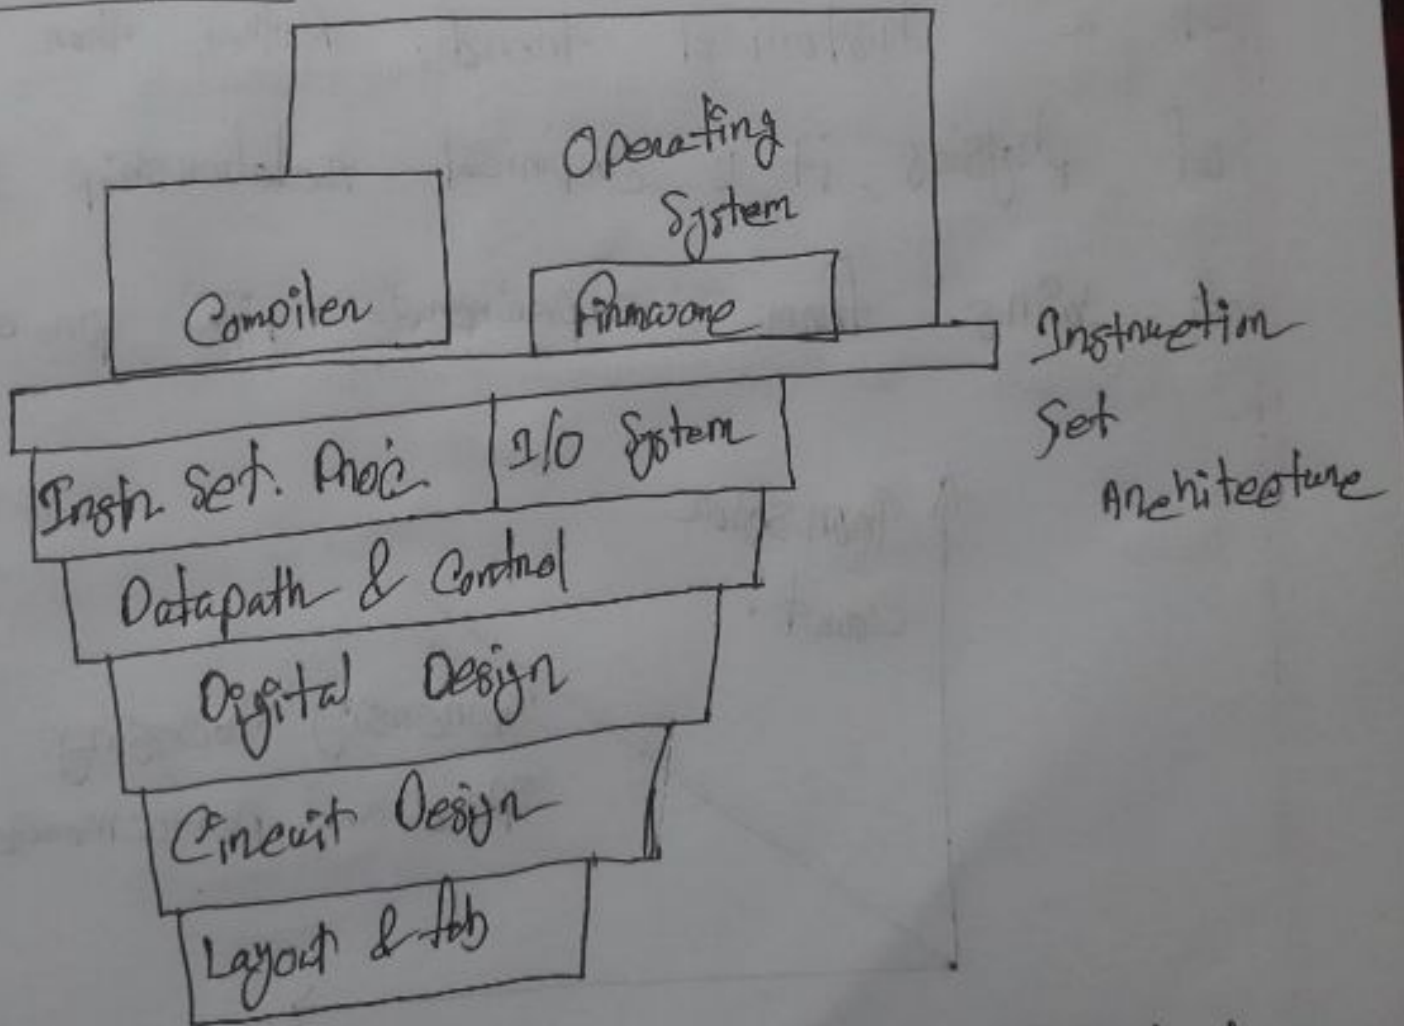 Operating
System
Compiler
Firmware
Instruction
Set
Architecture
Instr. Set. Proc.
I/O System
Datapath & Control
Digital Design
Circuit Design
Layout & fab